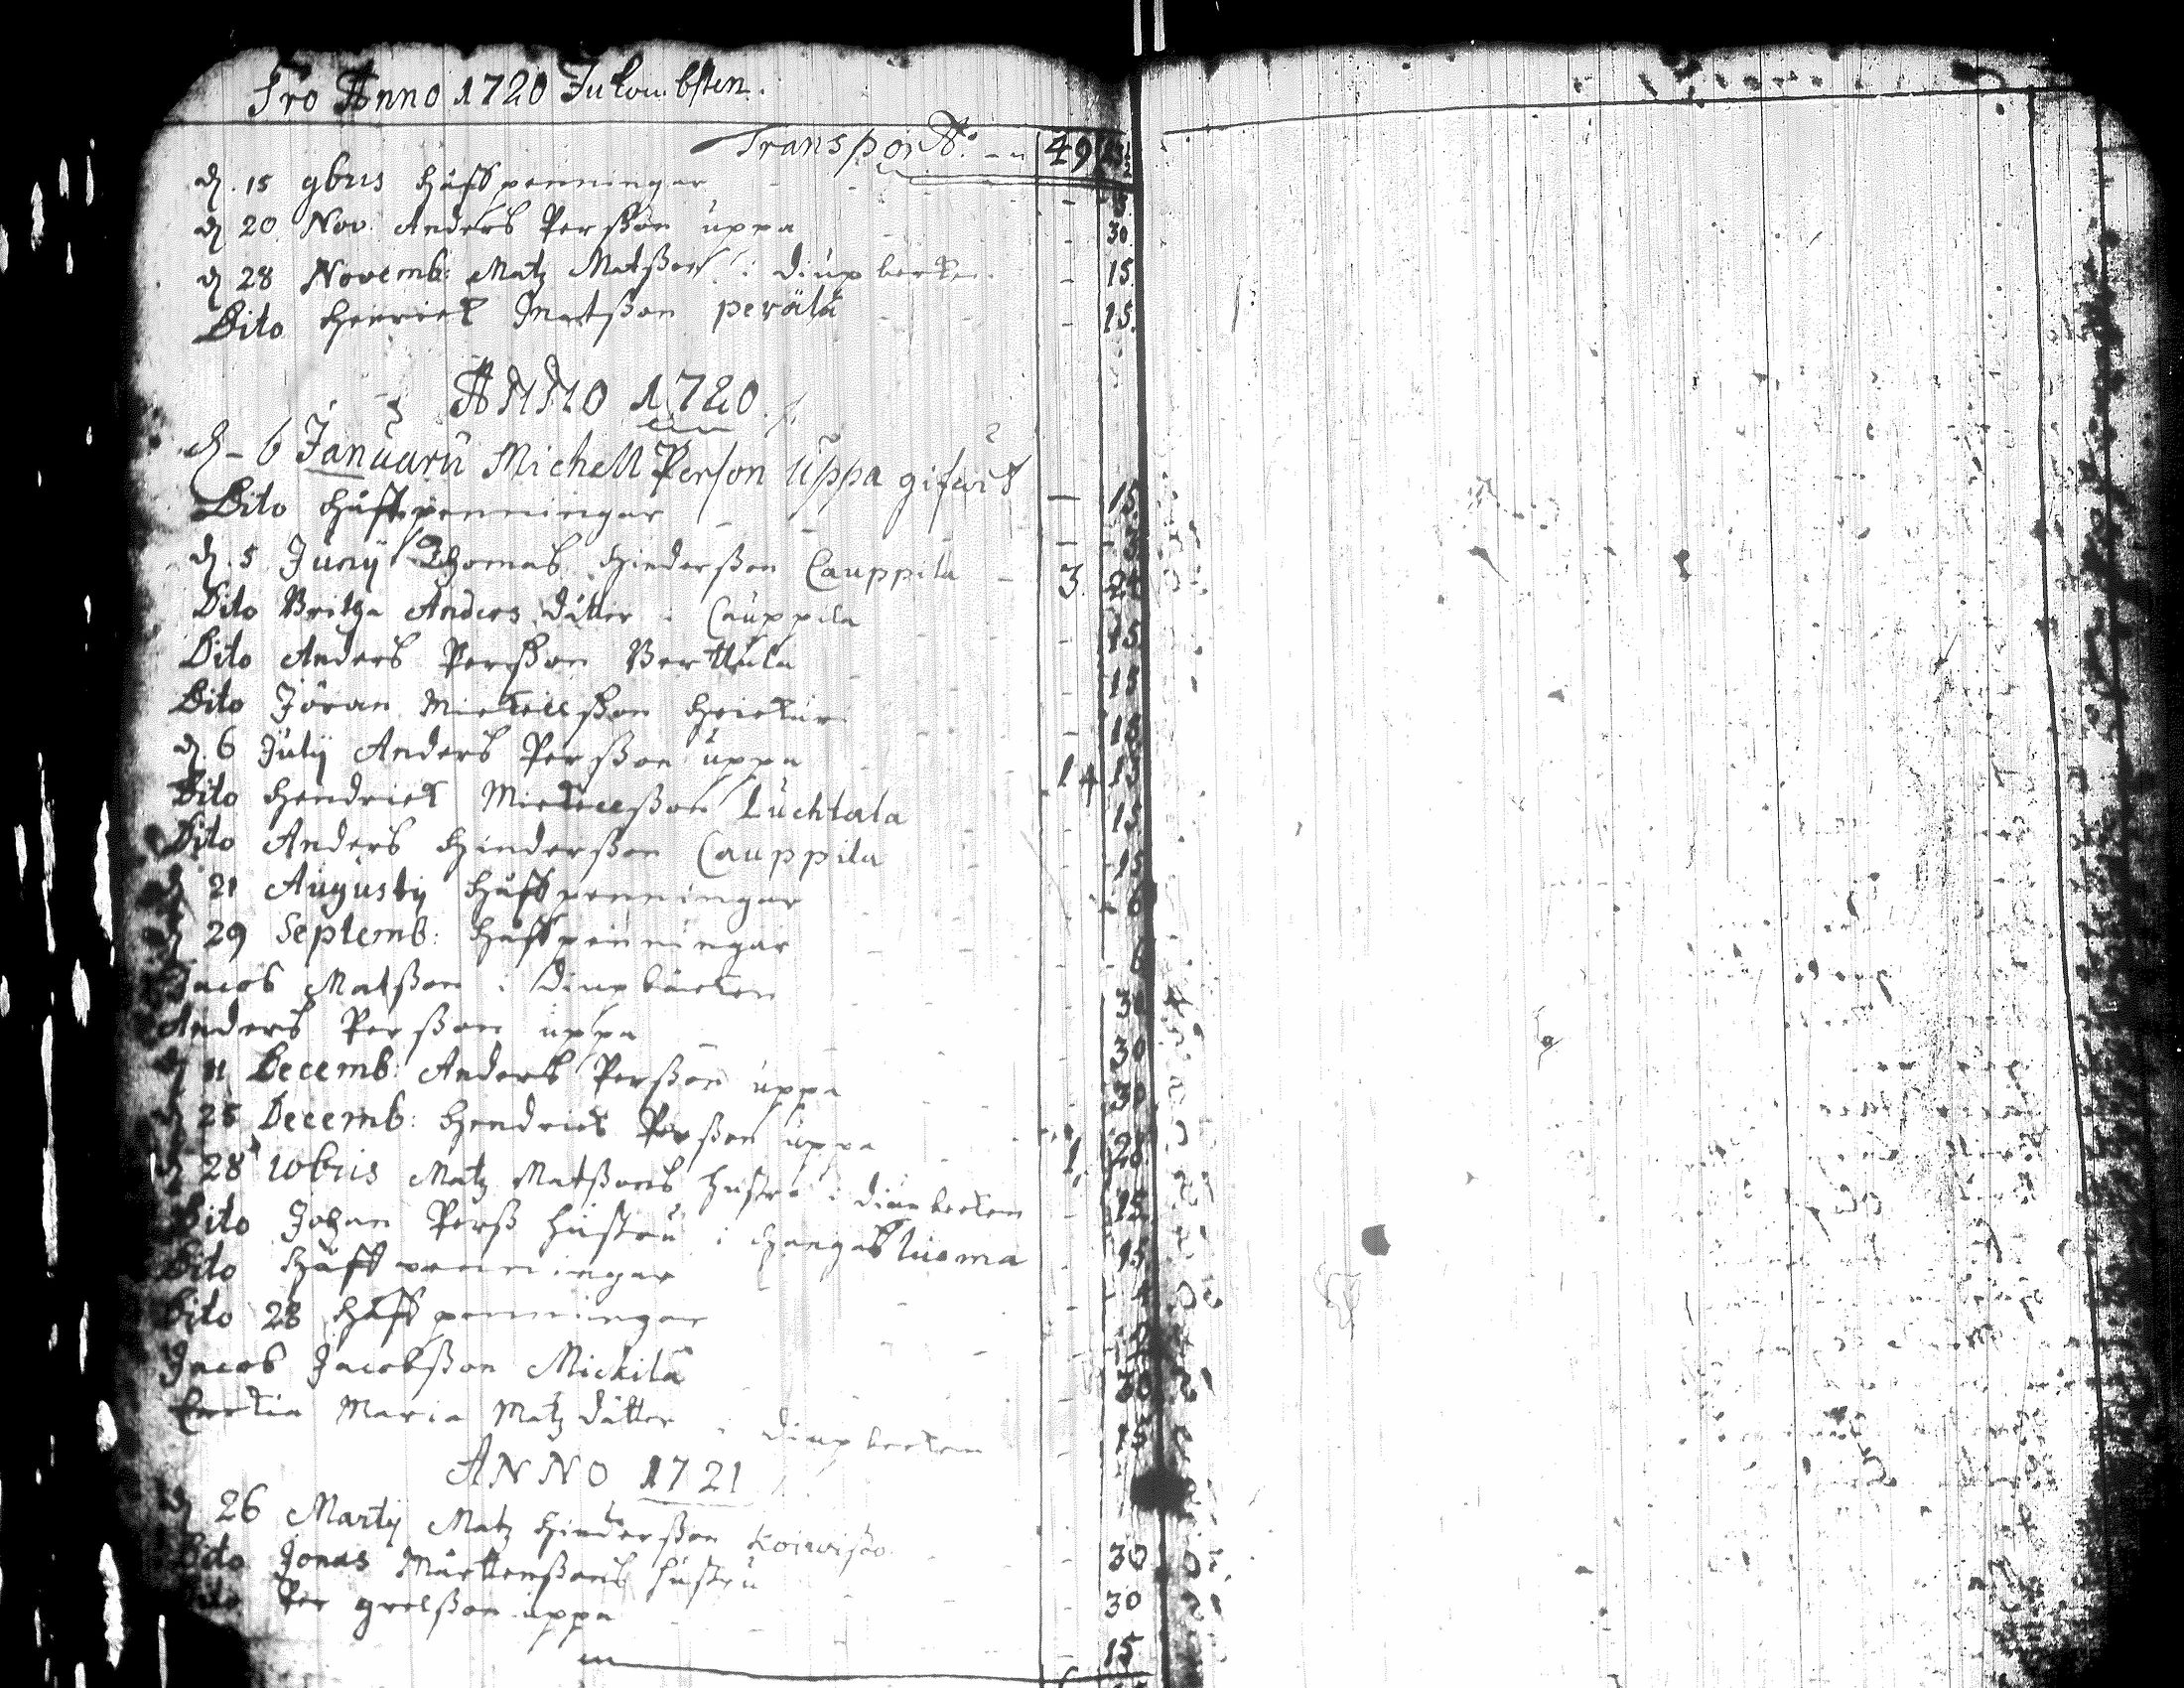 Pro Anno 1720 Inkombsten.
Transport: 49
d. 15 9bris håfspenningar
d. 20 Nov. Anders Persson uppa 30
d. 28 Novemb: Matz Matsson i diupbecken 15
Dito Henrick Matsson perälä 15.
ANNO 1720
d. 6 Januarii Michell Person uppa gifwit 15
Dito håfspenningar
d. 5 Junij Thomas Hindersson Cauppila 3. 24
Dito Britha Anders dotter i Cauppila 15
Dito Anders Persson Berttula 15
Dito Jöran Mickellsson 15
d. 6 Julij Anders Persson uppa 14 15
Dito Hendrick Mickellsson Luchtala 15
Dito Anders Hindersson Cauppila 15
d 21 Augustij håfspenningar 6
d 29 Septemb: håfspenningar
Jacob Matsson i diupbäcken 30
Anders Persson uppa 30
d 11 Decemb: Anders Persson uppa 30
d 25 Decemb: Hendrick Persson uppa 1. 28
d 28 10bris Matz Matssons hustru i diupbecken 15
Dito Johan Perss hustru i Hangasluoma 15
Dito håfspenningar
Dito 28 håfspenningar
Jacob Jacobsson Mickila 30
Maria Matz dotter i diupbecken 15
ANNO 1721
d 26 Martij Matz Hindersson Koiwisto 30
Dito Jonas Mårttenssons hustru 30
Dito Per Grelsson uppa 15